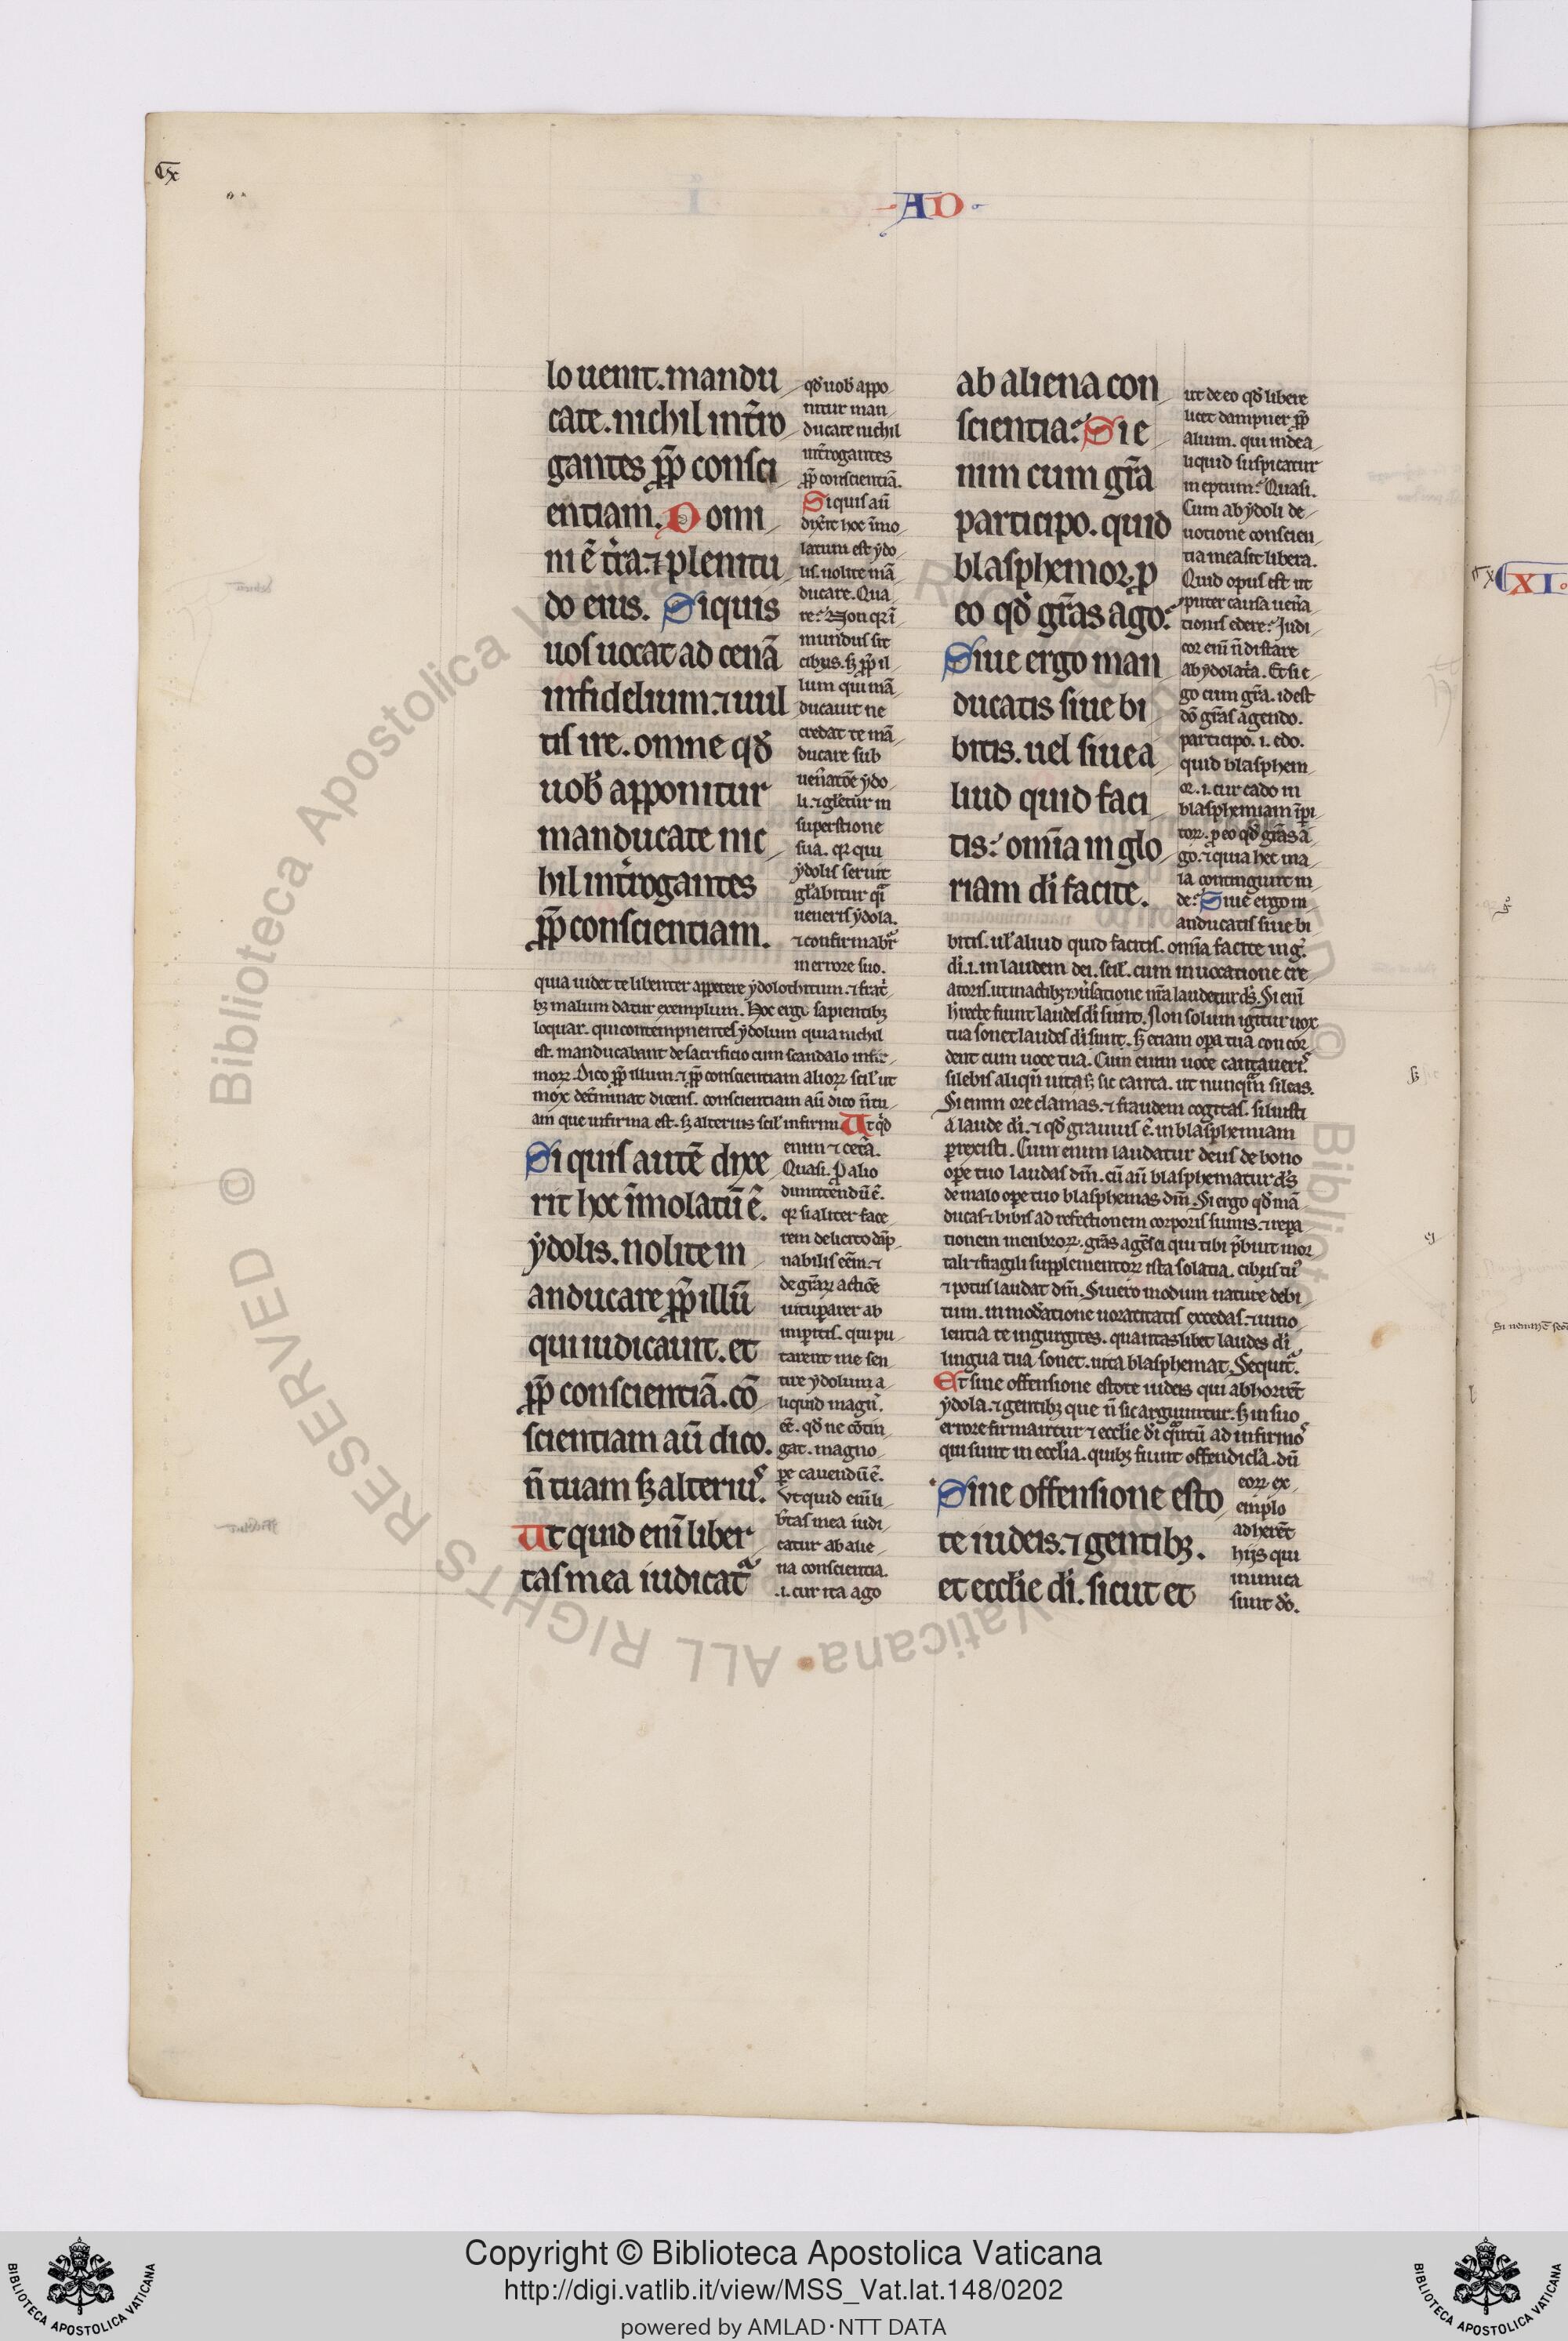 ·AD·
lo uenit. mandu
cate. nichil int̾ro
gantes pp̄ consci
entiam. Domi
ni ē t̾ra. ⁊ plenitu
do eius. Siquis
uos uocat ad cenā
infidelium. ⁊ uul
tis ire. omne qđ
uob̾ apponitur
manducate nic
hil int̾rogantes
pp̄ conscientiam.
qđ uob̾ appo
nitur man
ducate nichil
int̾rogantes
pp̄ conscientiā.
Siquis aū
dix̾it hoc īmo
latum est ydo
lis. nolite mā
ducare. Qua
re? Non qr ī
mundus sit
cibus. sꝫ pp̄ il
lum qui mā
ducauit ne
credat te mā
ducare sub
uen̾atōe ydo
li. ⁊ gl̾etur in
superstione
sua. qr qui
ydolis seruit
gl̾abitur qī
ueneris ydola.
⁊ confirmabr̄
in errore suo.
quia uidet te libenter appetere ydolothitum. ⁊ frat̾
bꝫ malum datur exemplum. Hoc ergo sapientibꝫ
loquar. qui contempnentes ydolum quia nichil
est. manducabant de sacrificio cum scandalo infir
morꝝ. Dico pp̄ illum. ⁊ pp̄ conscientiam aliorꝝ scil̾ ut
mox det̾minat dicens. conscientiam aū dico n̄ tu
am que infirma est. sꝫ alterius scil̾ infirmi Ut qd
Si quis autē dixe
rit hoc īmolatū ē.
ydolis. nolite m
anducare pp̄ illū
qui iudicauit. et
pp̄ conscientiā. cō
scientiam aū dico.
n̄ tuam sꝫ alteriuꝰ.
Ut quid eni̅ liber
tas mea iudicat̾
enim ⁊ cet̾a.
Quasi. P alio
dimittendū ē.
qr si aliter face
rem de licito dāp
nabilis eēm. ⁊
de gr̄aꝝ actiōe
uituꝑarer ab
imꝑitis. qui pu
tarent me sen
tire ydolum a
liquid magn̾.
eē. qđ ne cōtin
gat. magno
ꝑe cauendū ē.
Vt quid eni̅ li
b̾tas mea iudi
catur ab alie
na conscientia.
.i. cur ita ago
ab aliena con
scientia? Si e
nim cum gr̄a
participo. quid
blasphemor. ꝓ
eo qđ gr̄as ago?
Siue ergo man
ducatis siue bi
bitis. uel siue a
liud quid faci
tis? omīa in glo
riam dī facite.
ut de eo qđ libere
licet dampner pp̄
alium. qui in dea
liquid suspicatur
ineptum? Quasi.
Cum ab ydoli de
uotione conscien
tia mea sit libera.
Quid opus est ut
puter causa uen̾a
tionis edere? Iudi
cor eni̅ n̄ distare
ab ydolat̾a. Et si e
go cum gr̄a. id est
dō gr̄as agendo.
participo. i. edo.
quid blasphem
or. i. cur cado in
blasphemiam īpi
torꝝ. ꝓ eo qđ gr̄as a
go. ⁊ quia hec ma
la contingunt in
de? Siue ergo m
anducatis siue bi
bitis. ul̾ aliud quid facitis. omīa facite in gl̾.
dī. i. in laudem dei. scil̾. cum inuocatione cre
atoris. ut in actibꝫ ⁊ ꝯuersatione nr̄a laudetur dꝰ. Si eni̅
h̾ recte fiunt laudes dī sunt. Non solum igitur uox
tua sonet laudes dī sunt. sꝫ etiam oꝑa tua concor
dent cum uoce tua. Cum enim uoce cantaueriꝰ
silebis aliqn̄ uita sꝫ sic canta. ut nunq̄m sileas.
Si enim ore clamas. ⁊ fraudem cogitas. siluisti
a laude dī. ⁊ qđ grauius ē. in blasphemiam
ꝑrexisti. Cum enim laudatur deus de bono
oꝑe tuo laudas dm̄. cū aū blasphematur dꝰ
de malo oꝑe tuo blasphemas dm̄. Si ergo qđ mā
ducas ⁊ bibis ad refectionem corporis sumis. ⁊ repa
tionem menbrorꝝ. gr̄as agēs ei qui tibi p̄buit mor
tali ⁊ fragili supplementorꝝ ista solatia. cibus tuꝰ
⁊ potus laudat dm̄. Si uero modum nature debi
tum. in mod̾atione uoratitatis excedas. ⁊ uino
lentia te ingurgites. quantaslibet laudes dī
lingua tua sonet. uita blasphemat. Sequit̾.
Et sine offensione estote iudeis qui abhorrēt
ydola. ⁊ gentibꝫ que n̄ sic arguuntur. sꝫ in suo
errore firmantur ⁊ ecclie dī q̄ntū ad infirmoꝰ
qui sunt in eccl̾ia. quibꝫ fiunt offendicl̾a. dū
Sine offensione esto
te iudeis. ⁊ gentibꝫ.
et ecclie dī. sicut et
eorꝝ ex
emplo
adherēt
hijs qui
inimica
sunt dō.
XI
Copyright © Biblioteca Apostolica Vaticana
http://digi.vatlib.it/view/MSS_Vat.lat.148/0202
powered by AMLAD·NTT DATA
BIBLIOTECA APOSTOLICA VATICANA
BIBLIOTECA APOSTOLICA VATICANA
© Biblioteca Apostolica Vaticana ALL RIGHTS RESERVED